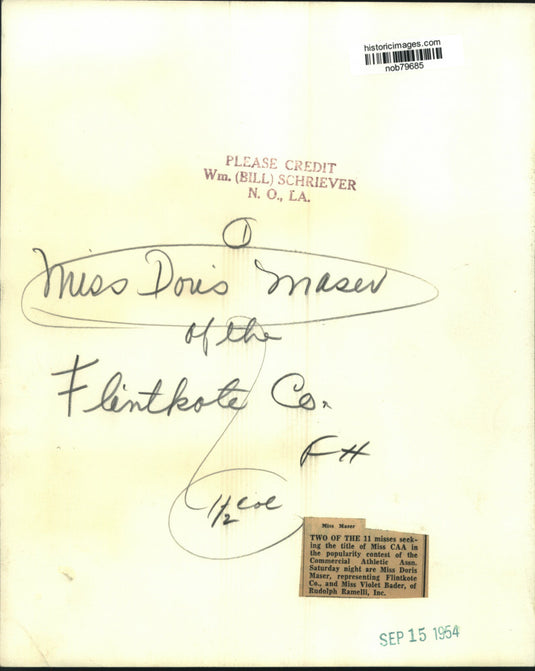 historicimages.com
nob79685
PLEASE CREDIT
Wm. (BILL) SCHRIEVER
N. O., LA.
1
Miss Doris Maser
of the
Flintkote Co.
FH
1/2 col
Miss Maser
TWO OF THE 11 misses seek-
ing the title of Miss CAA in
the popularity contest of the
Commercial Athletic Assn.
Saturday night are Miss Doris
Maser, representing Flintkote
Co., and Miss Violet Bader, of
Rudolph Ramelli, Inc.
SEP 15 1954